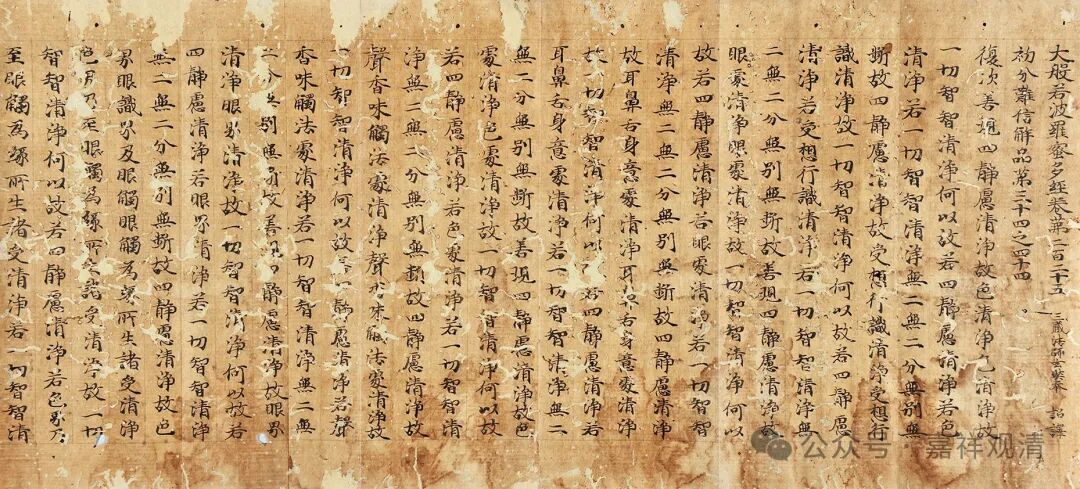 大般若波羅蜜多經卷第二百二十五 三藏法師玄奘奉 詔譯
初分難信解品第三十四之四十四
復次善現四靜慮清淨故色清淨色清淨故
一切智智清淨何以故若四靜慮清淨若色
清淨若一切智智清淨無二無二分無別無
斷故四靜慮清淨故受想行識清淨受想行
識清淨故一切智智清淨何以故若四靜慮
清淨若受想行識清淨若一切智智清淨無
二無二分無別無斷故善現四靜慮清淨故
眼處清淨眼處清淨故一切智智清淨何以
故若四靜慮清淨若眼處清淨若一切智智
清淨無二無二分無別無斷故四靜慮清淨
故耳鼻舌身意處清淨耳鼻舌身意處清淨
故一切智智清淨何以故若四靜慮清淨若
耳鼻舌身意處清淨若一切智智清淨無二
無二分無別無斷故善現四靜慮清淨故色
處清淨色處清淨故一切智智清淨何以故
若四靜慮清淨若色處清淨若一切智智清
淨無二無二分無別無斷故四靜慮清淨故
聲香味觸法處清淨聲香味觸法處清淨故
一切智智清淨何以故若四靜慮清淨若聲
香味觸法處清淨若一切智智清淨無二無
二分無別無斷故善現四靜慮清淨故眼界
清淨眼界清淨故一切智智清淨何以故若
四靜慮清淨若眼界清淨若一切智智清淨
無二無二分無別無斷故四靜慮清淨故色
界眼識界及眼觸眼觸為緣所生諸受清淨
色界乃至眼觸為緣所生諸受清淨故一切
智智清淨何以故若四靜慮清淨若色界乃
至眼觸為緣所生諸受清淨若一切智智清
公众号·嘉祥观清